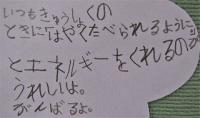 いつもきゅうしょくの
ときにはやくたべられるように
とエネルギーをくれるのが
うれしいよ。
がんばるよ。